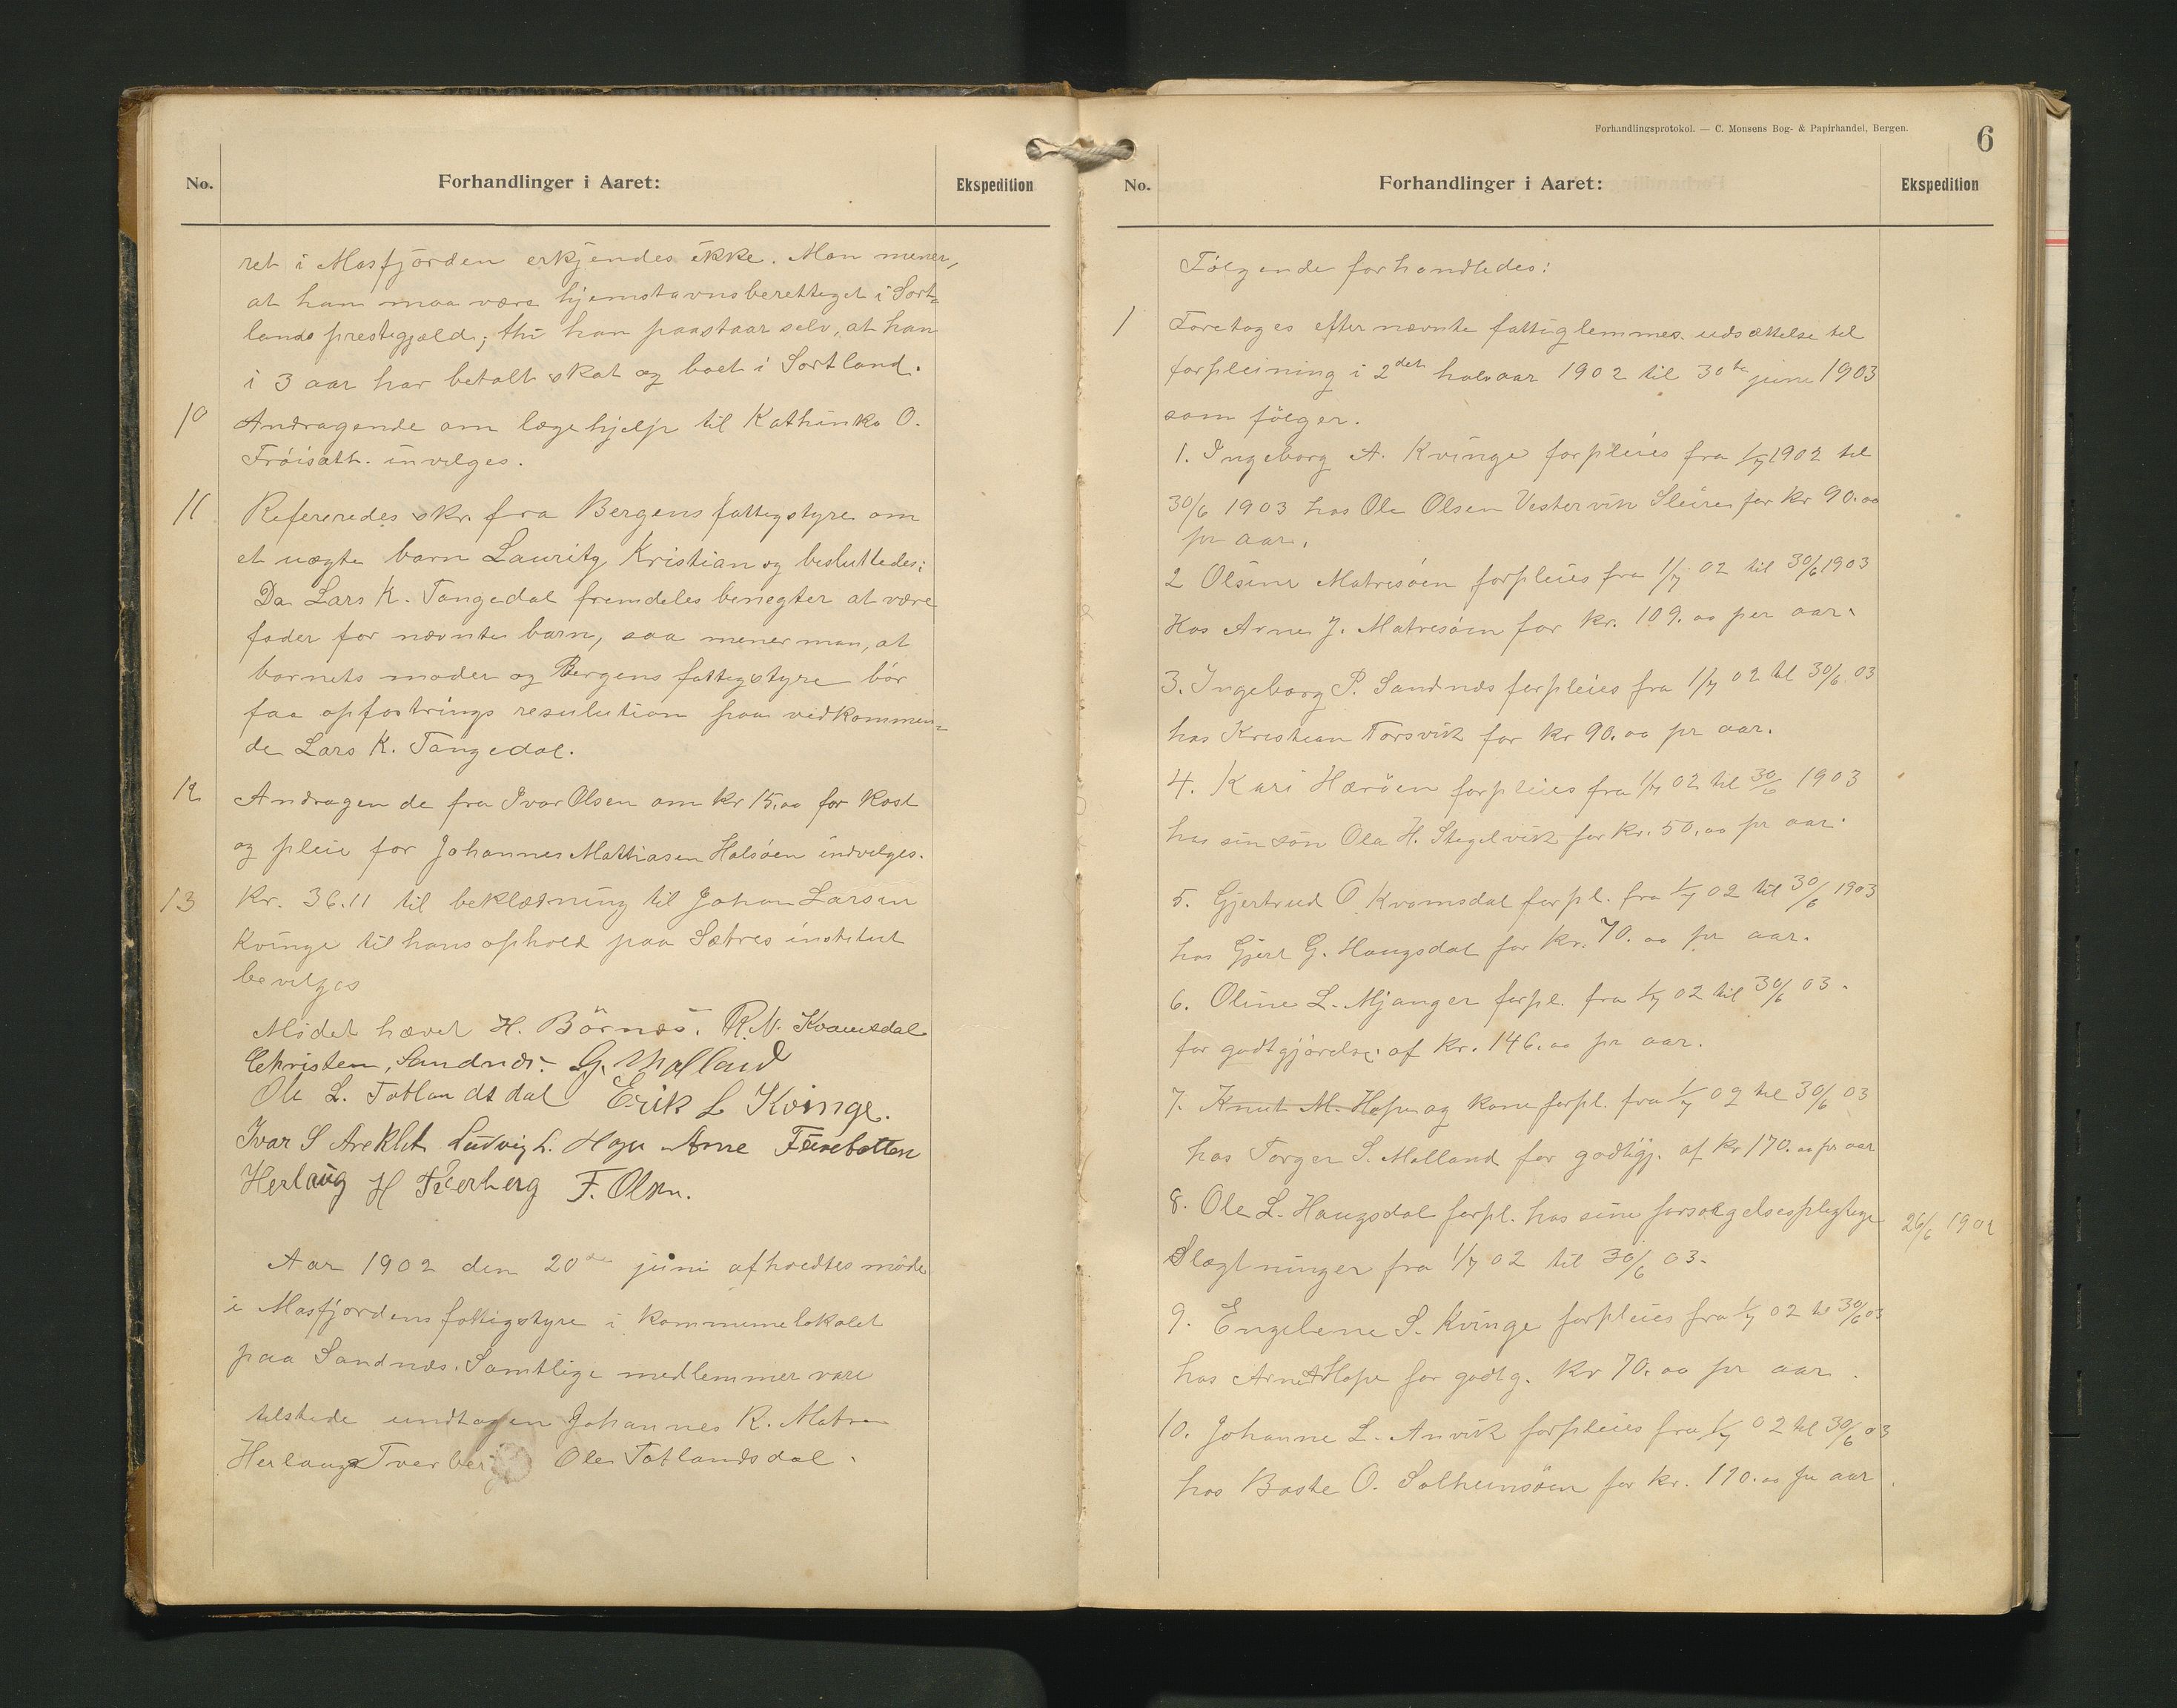 No.
Forhandlinger i Aaret:
Ekspedition
ret i Masfjorden erkjendes ikke. Man mener,
at han maa være hjemstavnsberettiget i Sort=
lands prestegjæld; thi han paastaar selv, at han
i 3 aar har betalt skat og boet i Sortland.
10 Andragende om lægehjelp til Kathinka O.
Fröisætt. invilges.
11 Refereredes skr. fra Bergens fattigstyre om
et uægte barn Lauritz Kristian og besluttedes:
Da Lars K. Tangedal fremdeles benegter at være
fader for nævnte barn, saa mener man, at
barnets moder og Bergens fattigstyre bör
faa opfostrings resulution paa vedkommen=
de Lars K. Tangedal.
12 Andragende fra Ivar Olsen om kr 15,00 for kost
og pleie for Johannes Mathiasen Halsöen indvilges.
13 Kr. 36.11 til beklædning til Johan Larsen
Kvinge til hans ophold paa Sætres institut
bevilges
Mödet hævet H. Börnes. R. N. Kvamsdal
Christen, Sandnæs. G. Molland
Ole L. Totlandsdal Erik L Kvinge.
Ivar S Areklet Ludvig L. Hope Arne Furebotten
Herlaug H Tverberg F. Olsen.
Aar 1902 den 20de juni afholdtes möde
i Masfjordens fattigstyre i kommunelokalet
paa Sandnæs. Samtlige medlemmer vare
tilstede undtagen Johannes R. Matre
Herlaug Tverberg Ole Totlandsdal.
Forhandlingsprotokol. — C. Monsens Bog- & Papirhandel, Bergen.
6
No.
Forhandlinger i Aaret:
Ekspedition
Fölgende forhandledes:
1 Foretoges efternævnte fattiglemmes udsættelse til
forpleining i 2det halvaar 1902 til 30te juni 1903
som fölger.
1. Ingeborg A. Kvinge forpleies fra 1/7 1902 til
30/6 1903 hos Ole Olsen Vestervik Sleire for kr 90.00
pr aar.
2 Olsine Matresöen forpleies fra 1/7 02 til 30/6 1903
Hos Arne J. Matresöen for kr. 109.00 per aar.
3. Ingeborg P. Sandnes forpleies fra 1/7 02 til 30/6 03
hos Kristian Torsvik for kr 90.00 pr aar.
4. Kari Hæröen forpleies fra 1/7 02 til 30/6 1903
hos sin sön Ola H. Stegelvik for kr. 50,00 pr aar.
5. Gjertrud O Kvamsdal forpl. fra 1/7 02 til 30/6 1903
hos Gjert G. Haugsdal for kr. 70.00 pr aar.
6. Oline L. Mjanger forpl. fra 1/7 02 til 30/6 03.
for godtgjörelse af kr. 146.00 pr aar.
7. Knut M. Hope og kone forpl. fra 1/7 02 til 30/6 03
hos Torger S. Molland for godtigj. af kr 170.00 pr aar
8. Ole L. Haugsdal forpl. hos sine forsörgelsespligtige
26/6 1902
Slægtninger fra 1/7 02 til 30/6 03.
9. Engelene S. Kvinge forpleies fra 1/7 02 til 30/6 03
hos Arne A Hope for godtg. kr 70.00 pr aar.
10. Johanne L. Anvik forpleies fra 1/7 02 til 30/6 03
hos Baste O. Solheimsöen for kr. 110.00 pr aar.